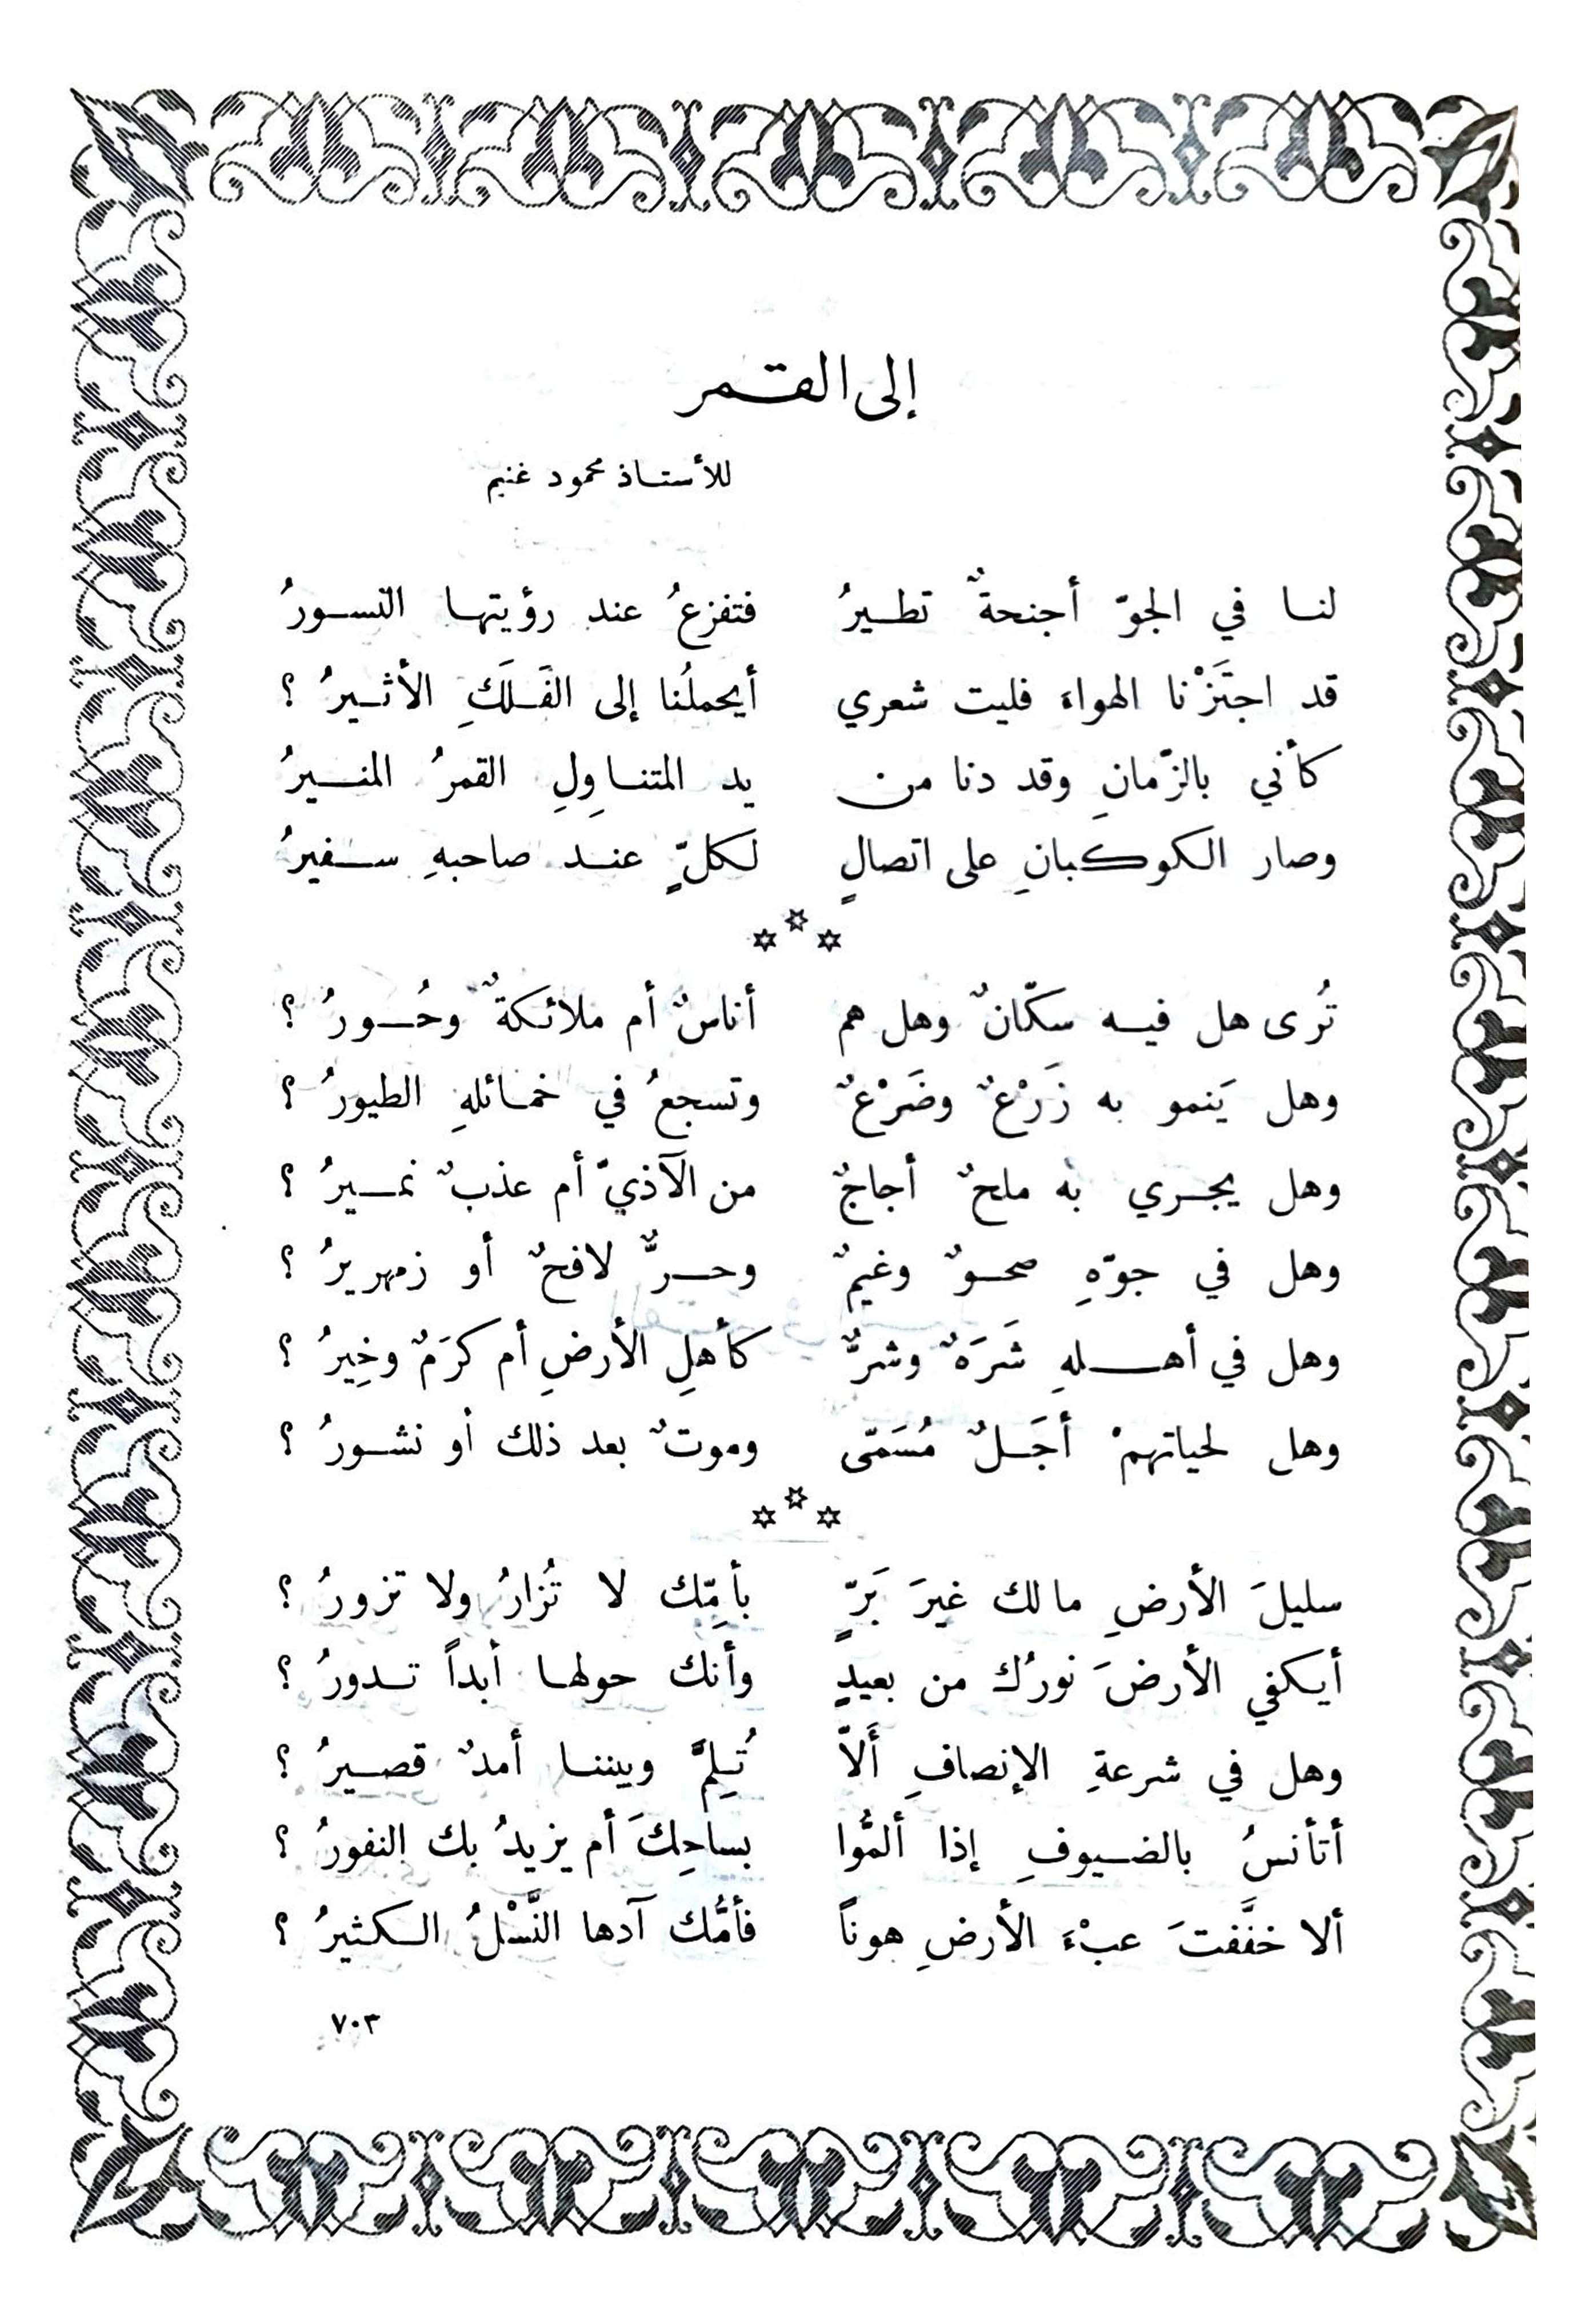 إلى القمر
للأستاذ محمود غنيم
لنا في الجوّ أجنحةٌ تطيرُ فتفزعُ عند رؤيتها النسورُ
قد اجتَزْنا الهواءَ فليت شعري أيحملُنا إلى الفَلَكِ الأثيرُ ؟
كأني بالزّمانِ وقد دنا من يد المتناوِلِ القمرُ المنيرُ
وصار الكوكبانِ على اتصالٍ لكلٍّ عند صاحبهِ سفيرُ
تُرى هل فيه سكّانٌ وهل هم أناسٌ أم ملائكةٌ وحُورُ ؟
وهل يَنمو به زَرْعٌ وضَرْعٌ وتسجعُ في خمائلهِ الطيورُ ؟
وهل يجري به ملحٌ أجاجٌ من الآذيّ أم عذبٌ نميرُ ؟
وهل في جوّهِ صحوٌ وغيمٌ وحرٌّ لافحٌ أو زمهريرُ ؟
وهل في أهلهِ شَرَهٌ وشرٌّ كأهلِ الأرضِ أم كرَمٌ وخِيرُ ؟
وهل لحياتهمْ أجَلٌ مُسَمّى وموتٌ بعد ذلك أو نشورُ ؟
سليلَ الأرضِ مالك غيرَ بَرٍّ بأمِّك لا تُزارُ ولا تزورُ ؟
أيكفي الأرضَ نورُك من بعيدٍ وأنك حولها أبداً تدورُ ؟
وهل في شرعةِ الإنصافِ أَلاّ تُلِمَّ وبيننا أمدٌ قصيرُ ؟
أتأنسُ بالضيوفِ إذا ألمُّوا بساحِكَ أم يزيدُ بك النفورُ ؟
ألا خفَّفتَ عبْءَ الأرضِ هوناً فأمُّك آدها النَّسْلُ الكثيرُ ؟
٧٠٣